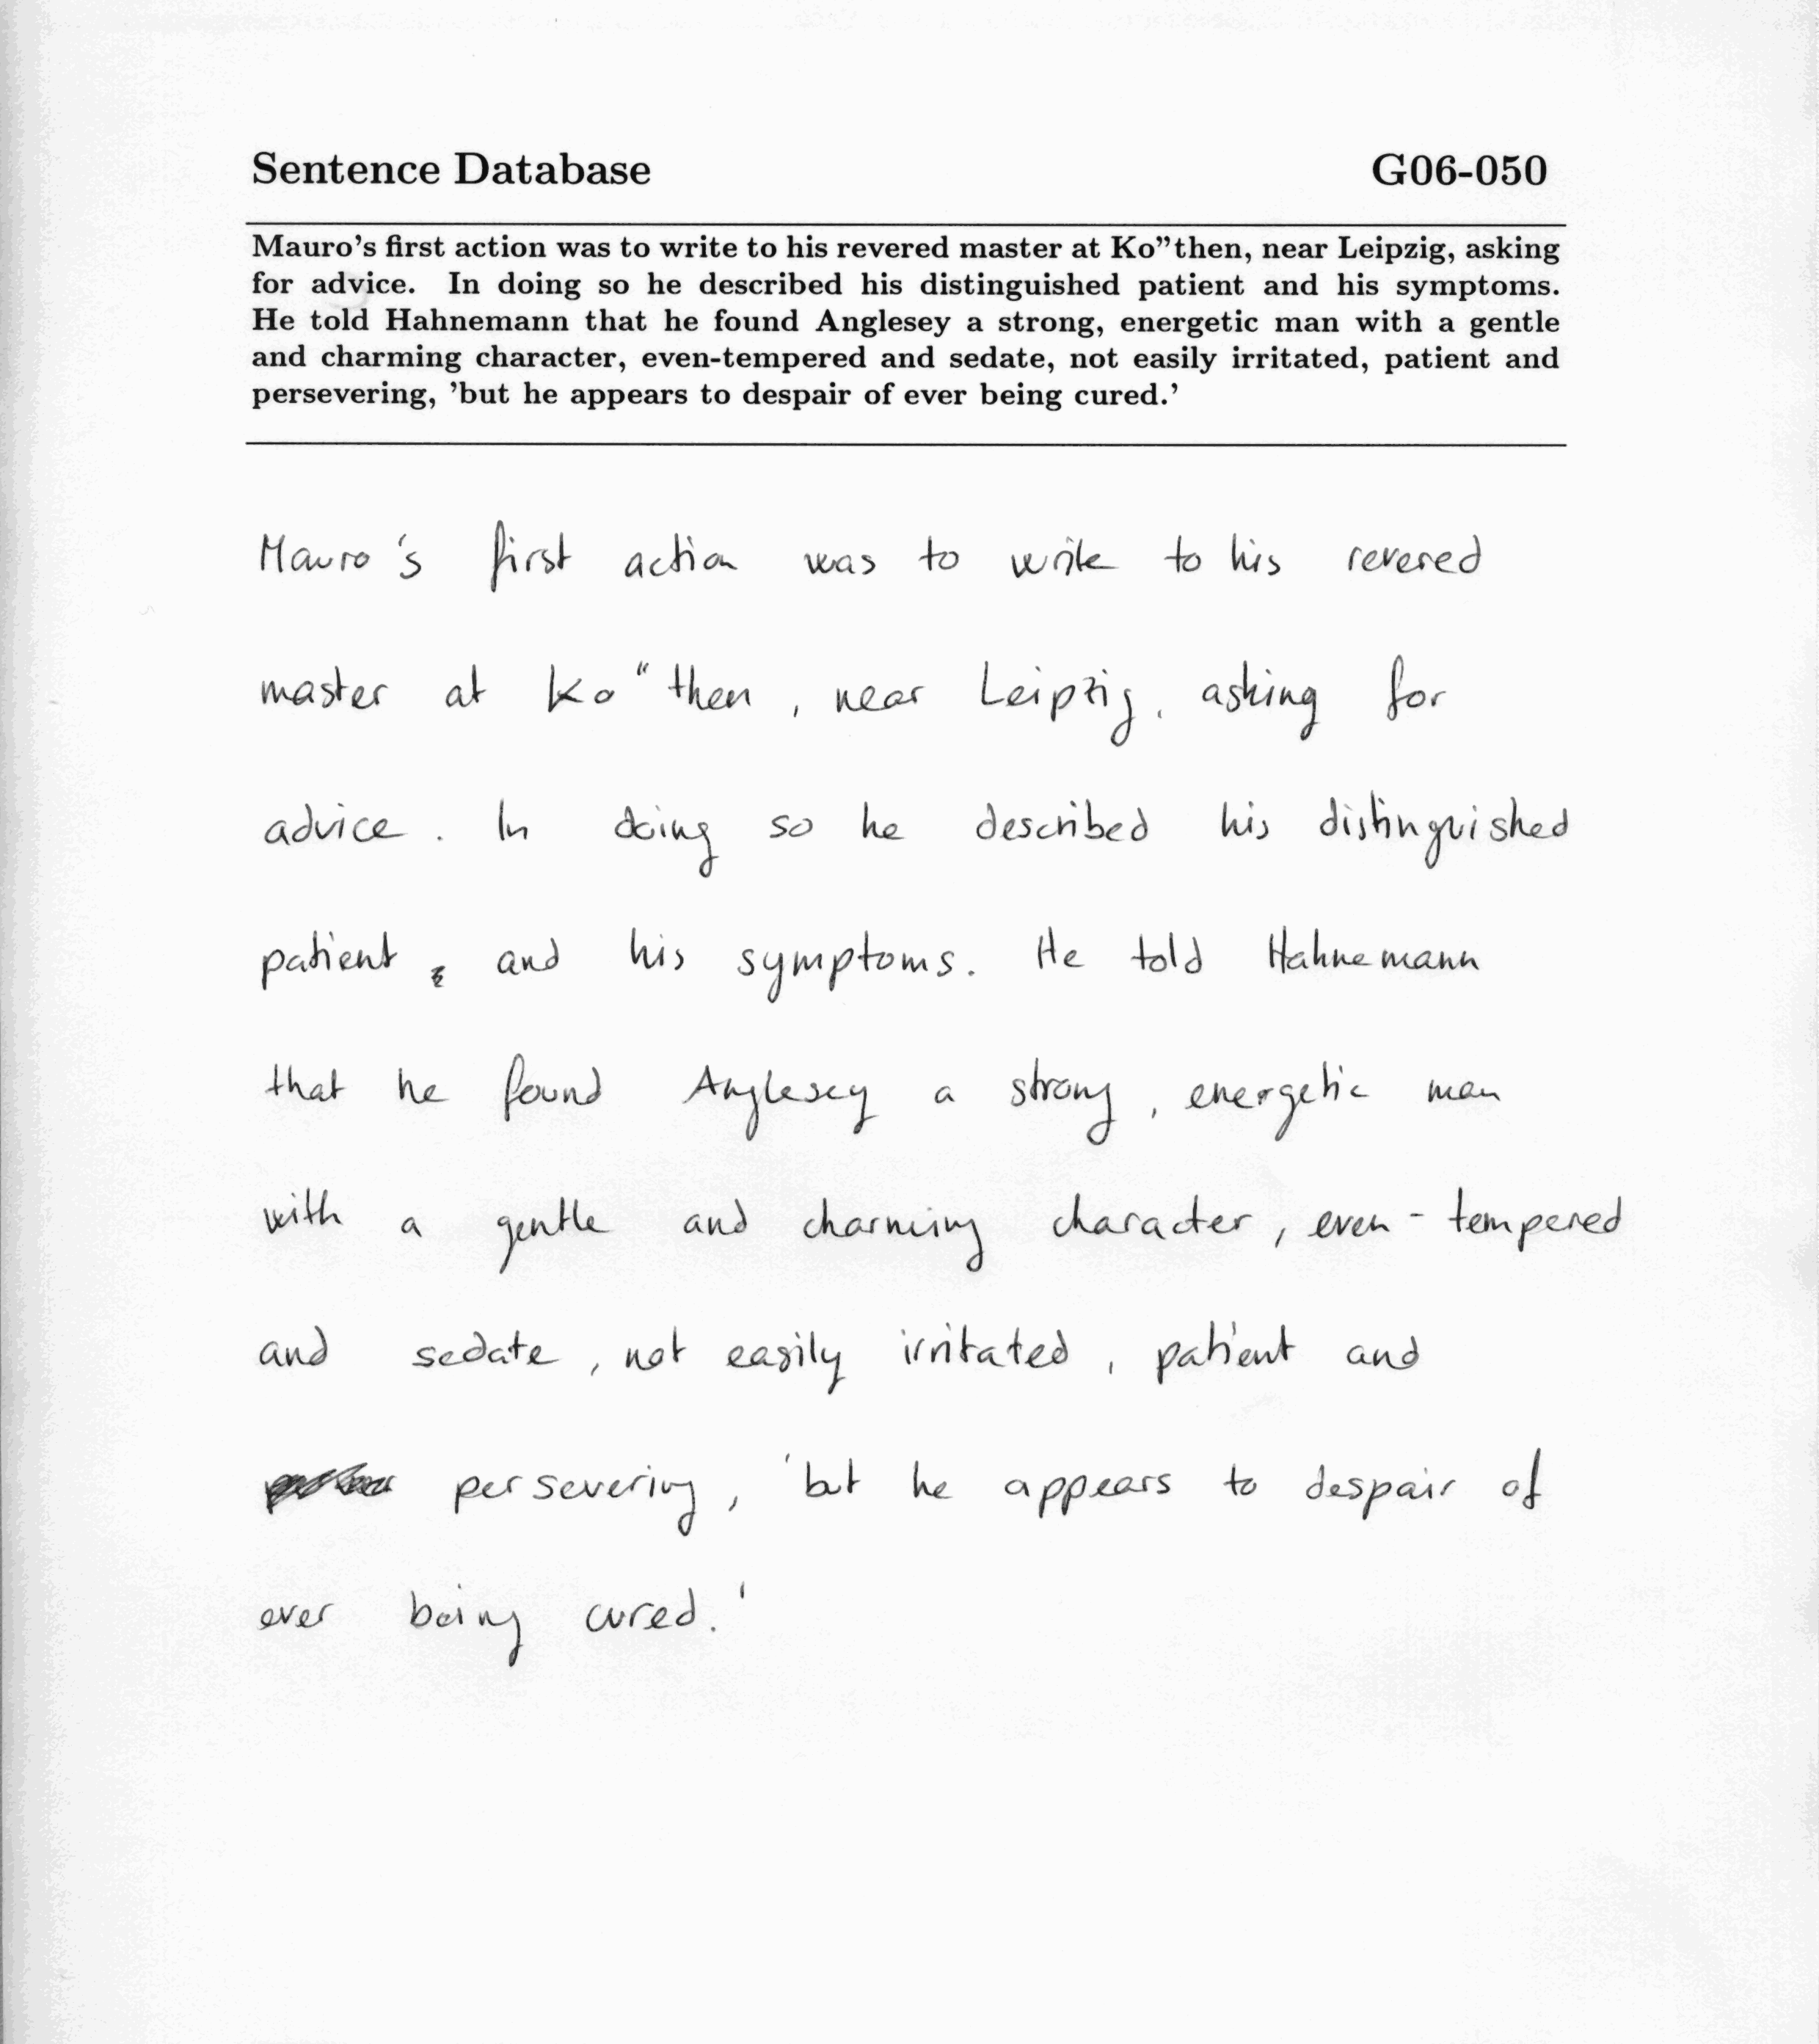 Sentence Database G06-050
Mauro's first action was to write to his revered master at Ko"then, near Leipzig, asking
for advice. In doing so he described his distinguished patient and his symptoms.
He told Hahnemann that he found Anglesey a strong, energetic man with a gentle
and charming character, even-tempered and sedate, not easily irritated, patient and
persevering, 'but he appears to despair of ever being cured.'
Mauro's first action was to write to his revered
master at Ko"then, near Leipzig, asking for
advice. In doing so he described his distinguished
patient and his symptoms. He told Hahnemann
that he found Anglesey a strong, energetic man
with a gentle and charming character, even-tempered
and sedate, not easily irritated, patient and
persevering, 'but he appears to despair of
ever being cured.'